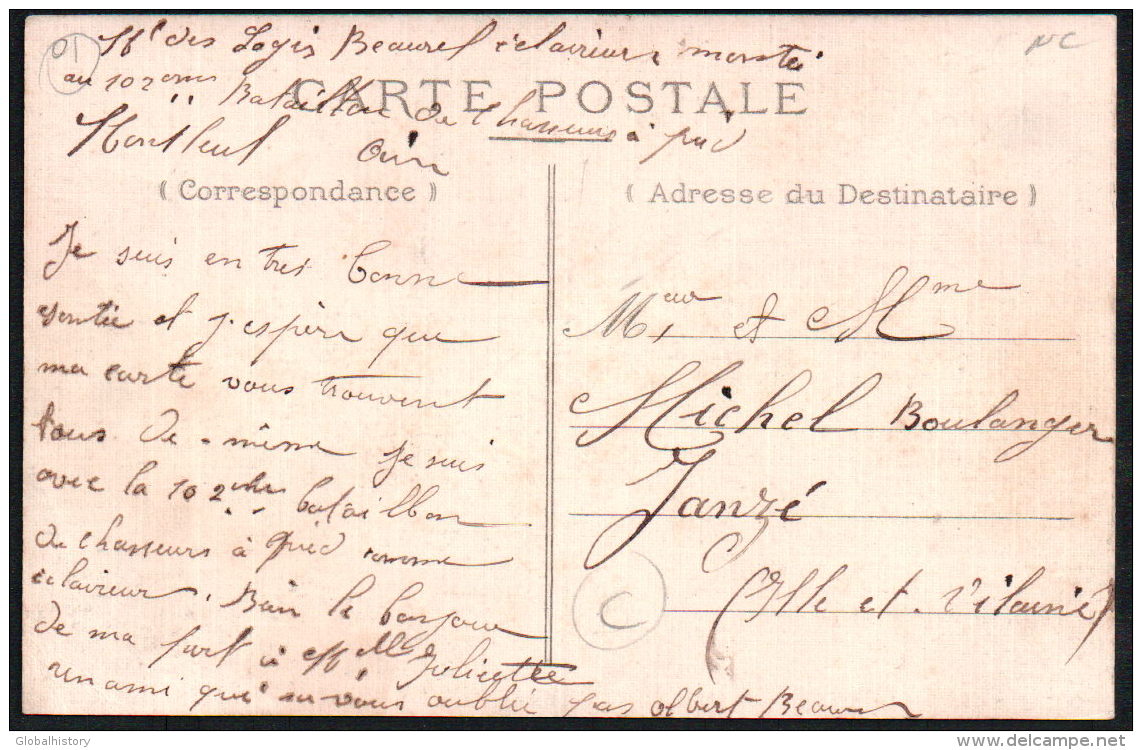 Ml des Logis Beaurel éclaireur monté
au 102 eme Bataillon de Chasseurs à pied
Montluel Ain
CARTE POSTALE
( Correspondance )
( Adresse du Destinataire )
Je suis en très bonne
santé et j'espère que
ma carte vous trouvent
tous de même je suis
avec la 102 eme bataillon
de chasseurs à pied comme
éclaireur. Bien le bonjour
de ma part à Mlle Joliette
un ami qui ne vous oublie pas Albert Beaurel
Mr et Mme
Michel Boulanger
Janzé
Ille et Vilaine
C
01
NC
Globalhistory
delcampe.net